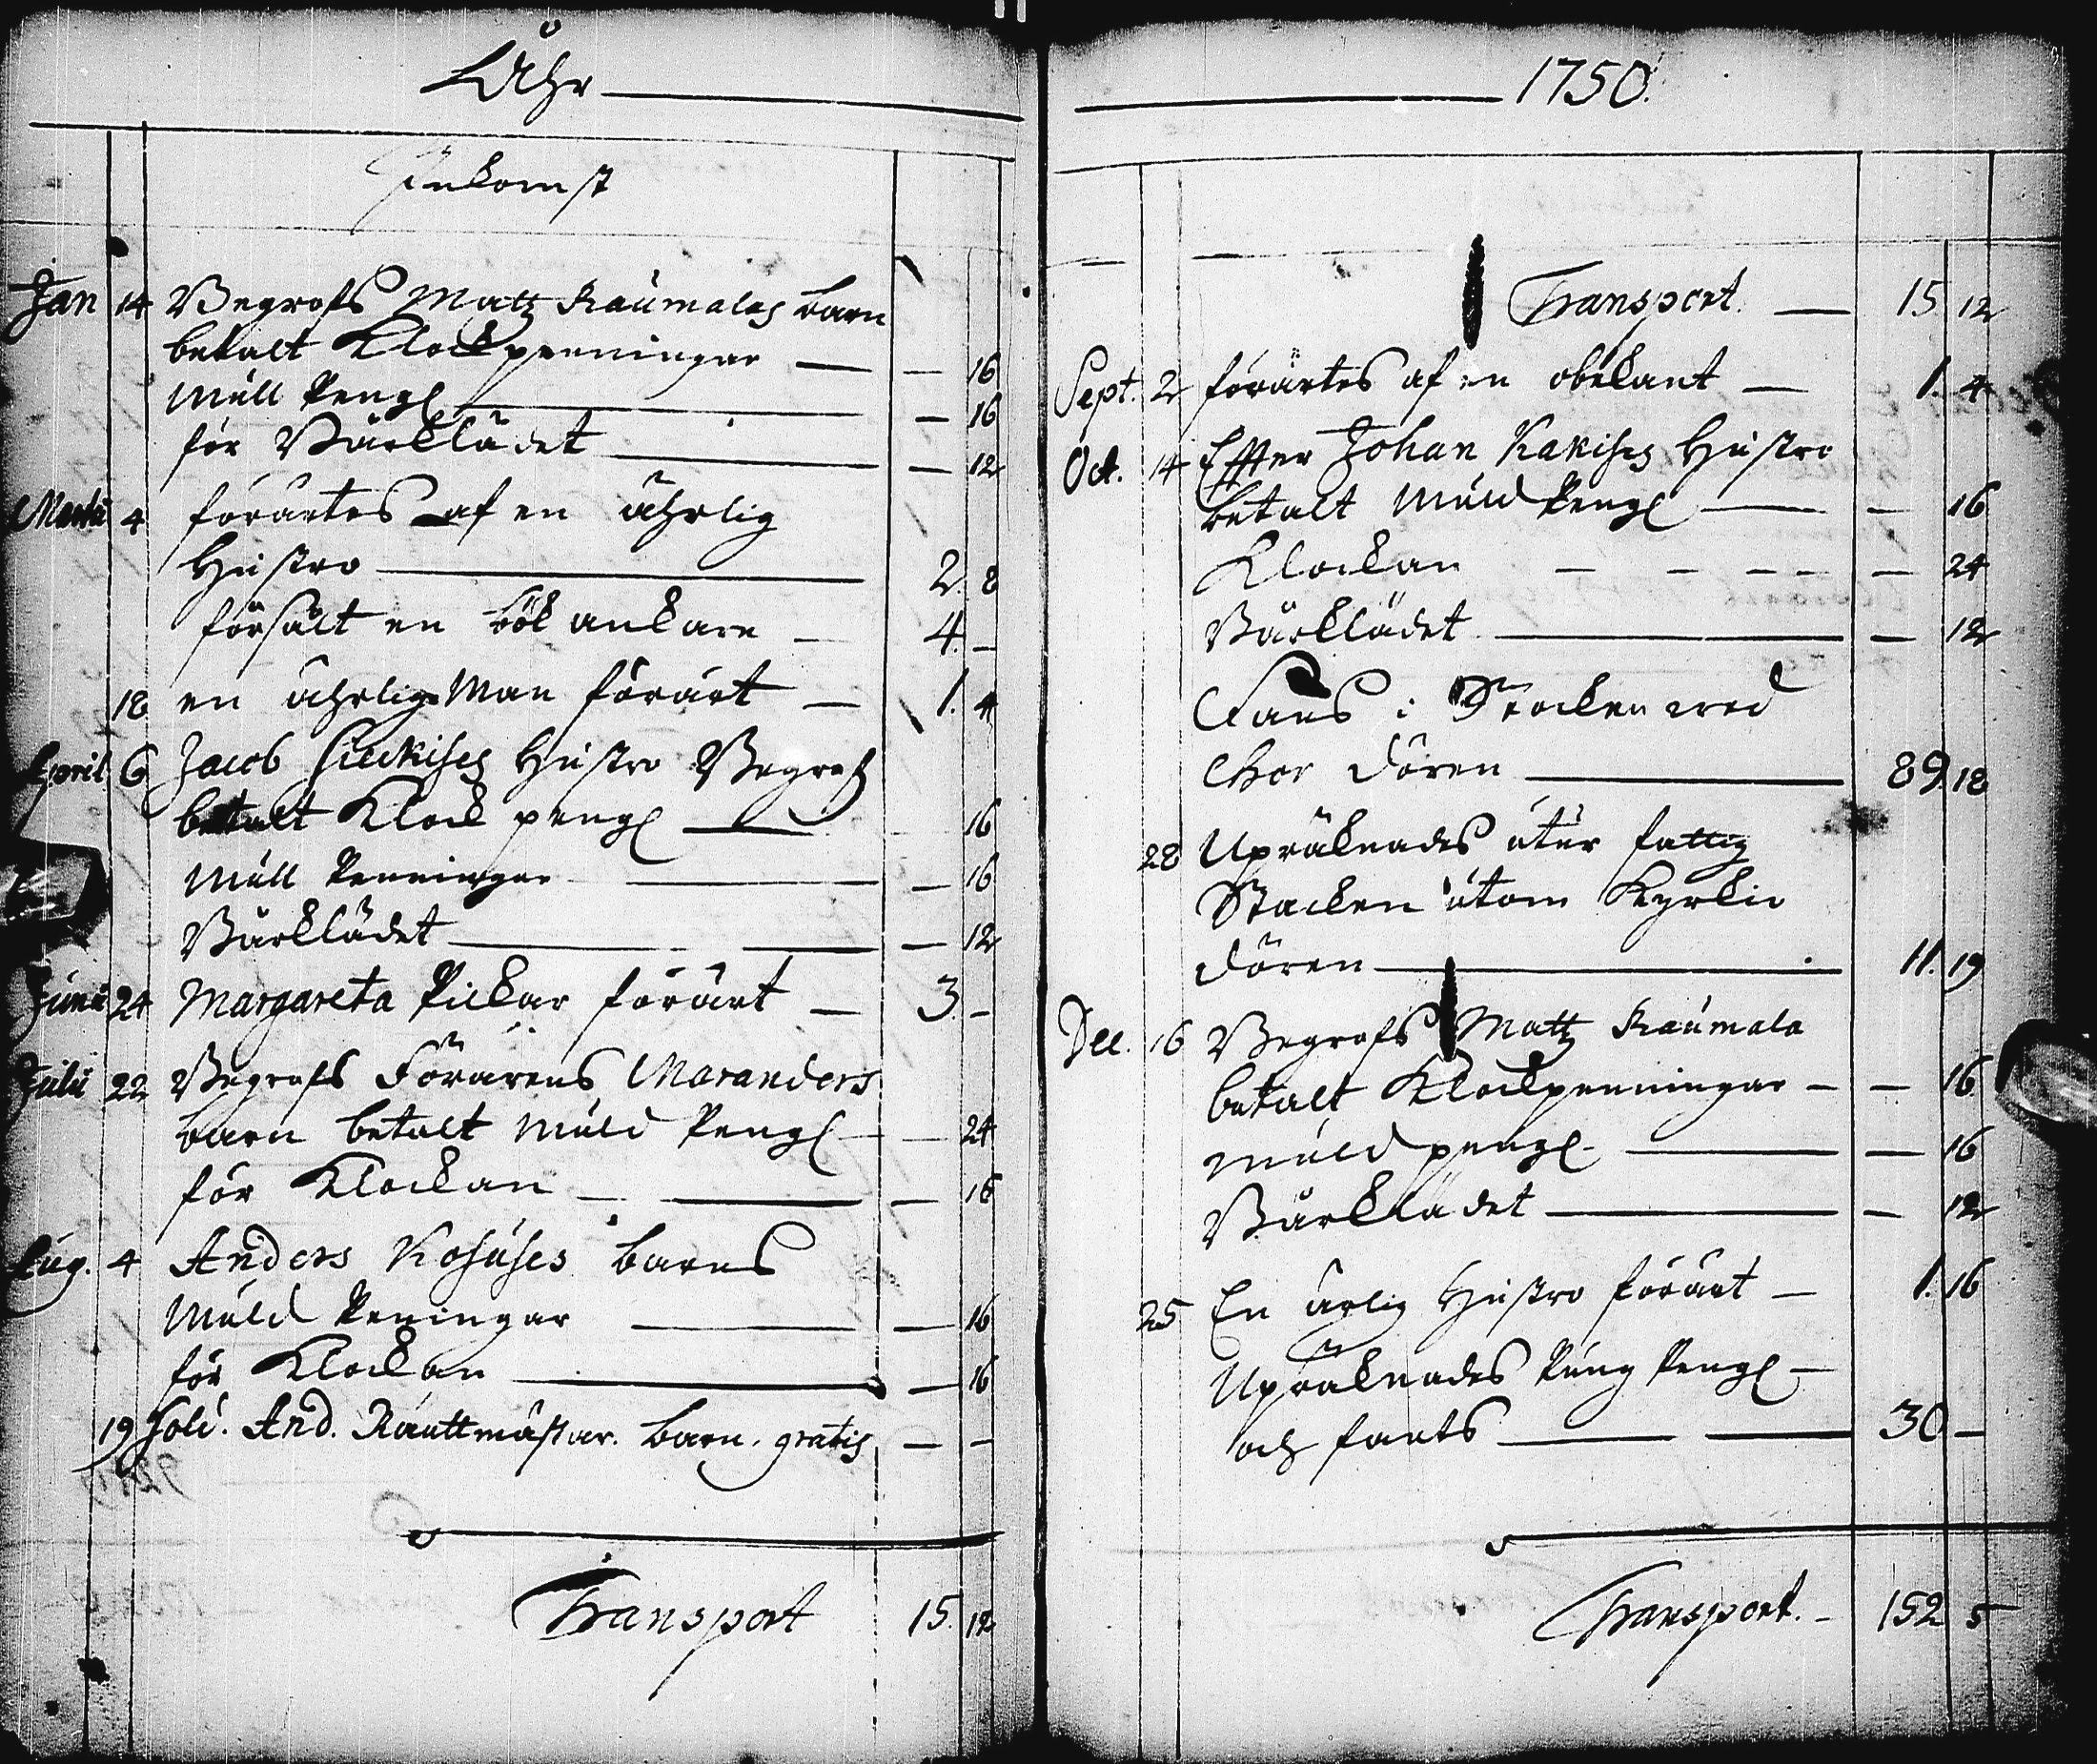 Åhr
Inkomst
Jan 14 Begrofs Matz Raumalas barn
betalt Klockpenningar — — 16
Mull Peng — 16
för Bårklädet — 12
Martii 4 förärtes af en ährlig
Hustro — 2. 8
försålt en bök ankare — 4. –
18 en ährlig Man förärt — 1. 4
April 6 Jacob Hustro Begrof
betalt Klock peng — 16
Mull Penningar — 16
Bårklädet — 12
Junii 24 Margareta Pickar förärt — 3. –
Julii 22 Begrofs Förarens Maranders
barn betalt Muld Peng — 24
för Klockan — 16
Aug. 4 Anders Kosuses barns
Muld Peningar — 16
för Klockan — 16
19 Sold. And. Råuttmästar. barn. gratis — –
Transport 15. 12
1750.
Transport. — 15 12
Sept. 2 förärtes af en obekant — 1. 4
Oct. 14 Effter Johan Kakises Hustro
betalt Muld Peng — — 16
Klockan — — — — — 24
Bårklädet — — 12
Fans i Stocken wed
Chor dören — 89. 18
28 Upräknades utur fattig
Stocken utom Kyrkio
dören — 11. 19
Dec. 16 Begrofs Matz Raumala
betalt Klockpenningar — — 16
muld peng — — 16
Bårklädet — — 12
25 En ärlig Hustro förärt — 1. 16
Upräknades Pung Peng —
och fants — 30 –
Transport. – 152 5